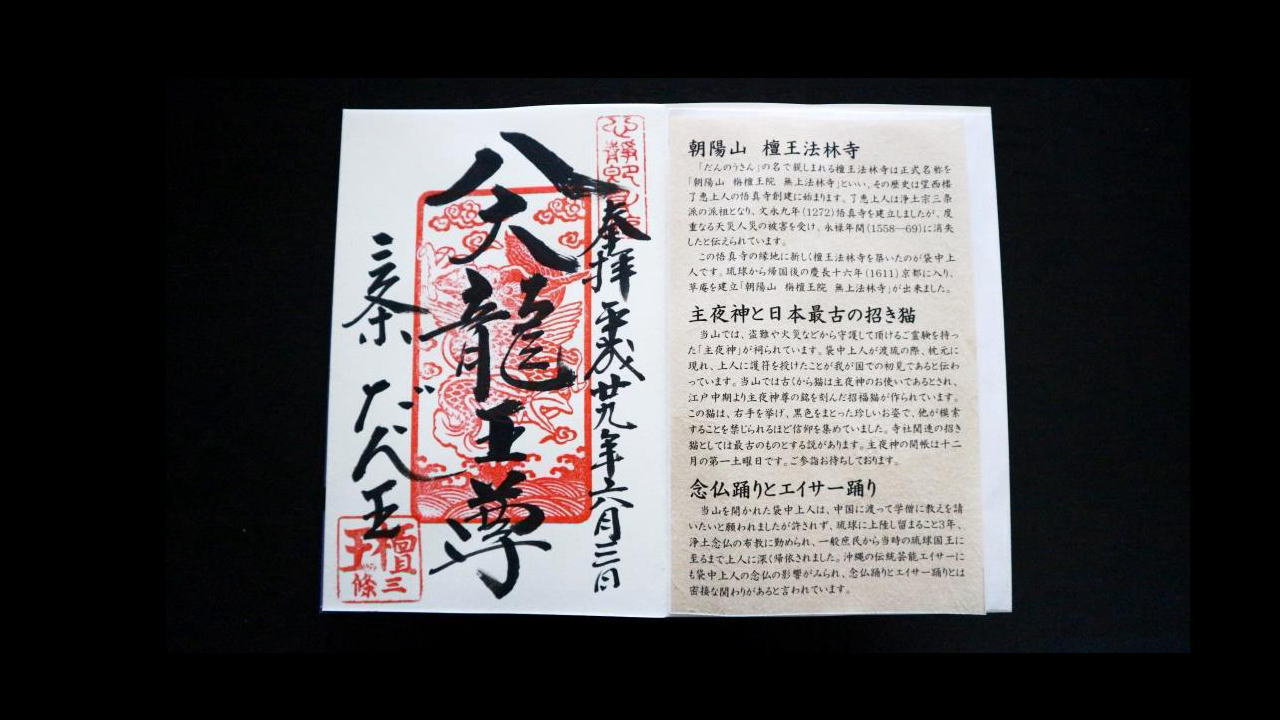 奉拝 平成廿九年六月三日
八大龍王尊
三条 だん王
檀王
三條
朝陽山 檀王法林寺
「だんのうさん」の名で親しまれる檀王法林寺は正式名称を
「朝陽山 栴檀王院 無上法林寺」といい、その歴史は望西楼
了恵上人の悟真寺創建に始まります。了恵上人は浄土宗三条
派の派祖となり、文永九年(1272)悟真寺を建立しましたが、度
重なる天災人災の被害を受け、永禄年間(1558―69)に消失
したと伝えられています。
この悟真寺の縁地に新しく檀王法林寺を築いたのが袋中上
人です。琉球から帰国後の慶長十六年(1611)京都に入り、
草庵を建立「朝陽山 栴檀王院 無上法林寺」が出来ました。
主夜神と日本最古の招き猫
当山では、盗難や火災などから守護して頂けるご霊験を持っ
た「主夜神」が祠られています。袋中上人が渡琉の際、枕元に
現れ、上人に護符を授けたことが我が国での初見であると伝わ
っています。当山では古くから猫は主夜神のお使いであるとされ、
江戸中期より主夜神尊の銘を刻んだ招福猫が作られています。
この猫は、右手を挙げ、黒色をまとった珍しいお姿で、他が模索
することを禁じられるほど信仰を集めていました。寺社関連の招き
猫としては最古のものとする説があります。主夜神の開帳は十二
月の第一土曜日です。ご参詣お待ちしております。
念仏踊りとエイサー踊り
当山を開かれた袋中上人は、中国に渡って学僧に教えを請
いたいと願われましたが許されず、琉球に上陸し留まること3年、
浄土念仏の布教に勤められ、一般庶民から当時の琉球国王に
至るまで上人に深く帰依されました。沖縄の伝統芸能エイサーに
も袋中上人の念仏の影響がみられ、念仏踊りとエイサー踊りとは
密接な関わりがあると言われています。